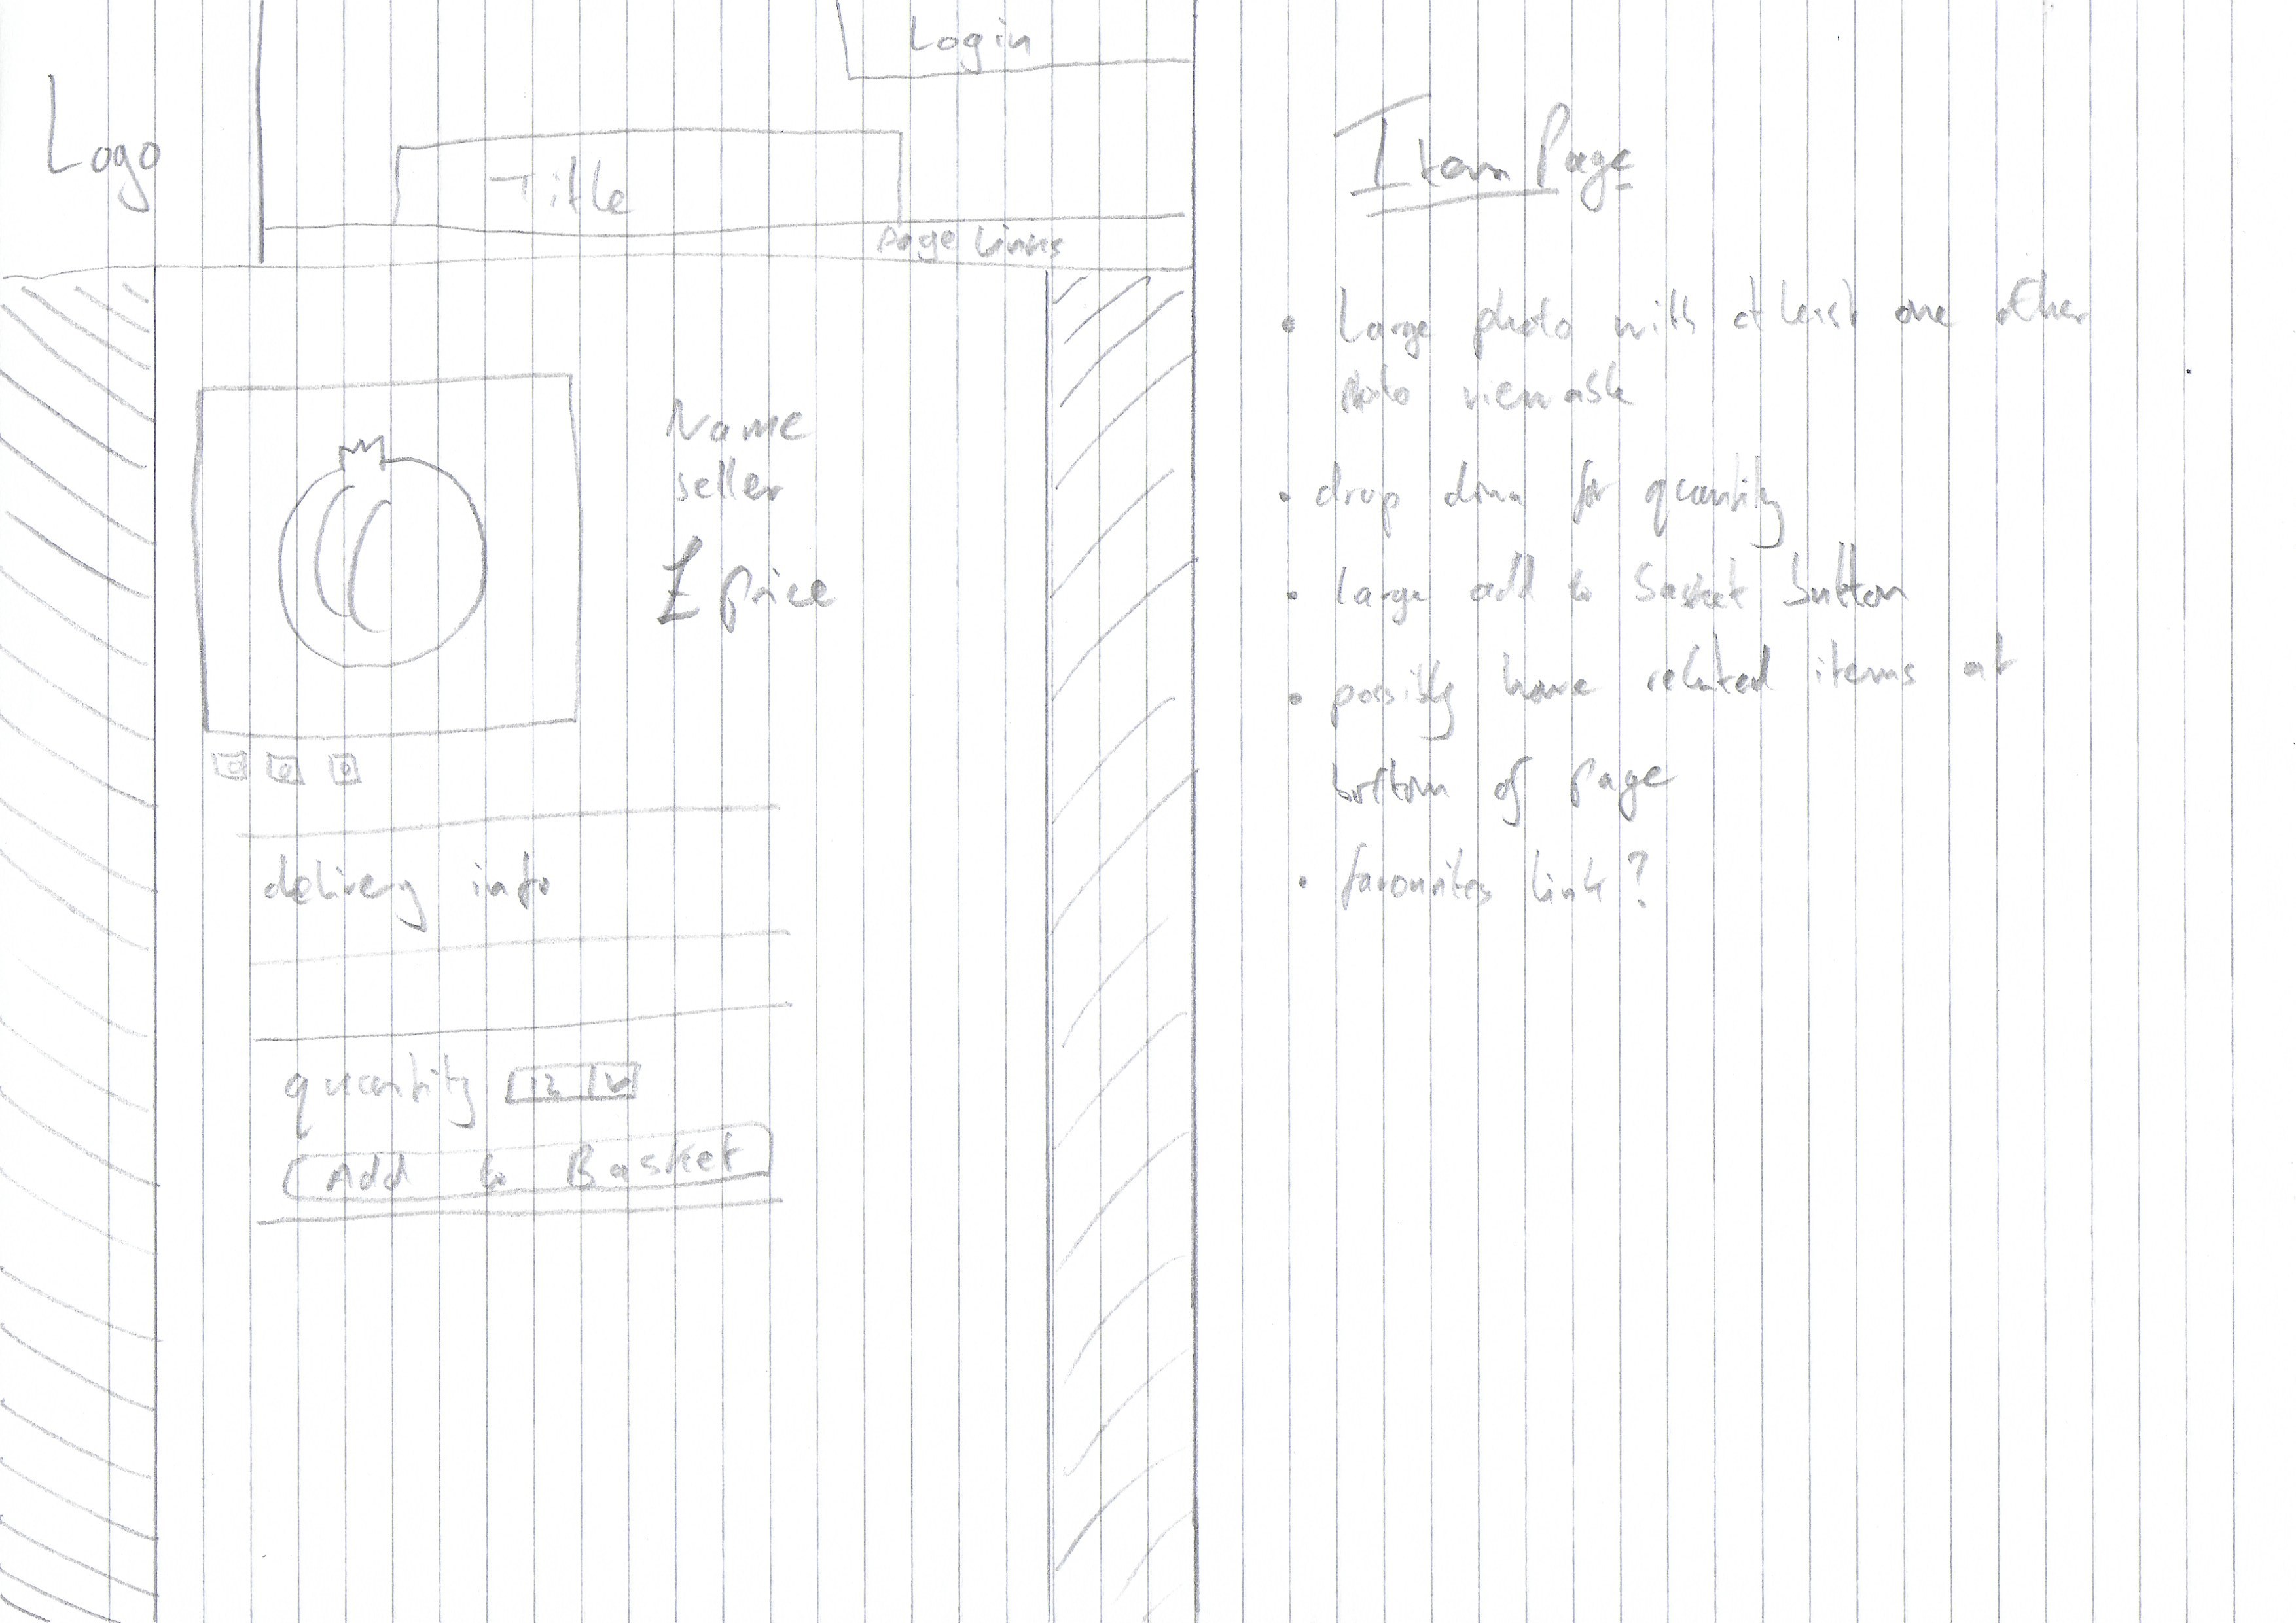 Login
Logo
Title
Page Links
Name
seller
£ price
delivery info
quantity 12
Add to Basket
Item Page
• Large photo with at least one other
photo viewable
• drop down for quantity
• large add to basket button
• possibly have related items at
bottom of page
• favourites link?